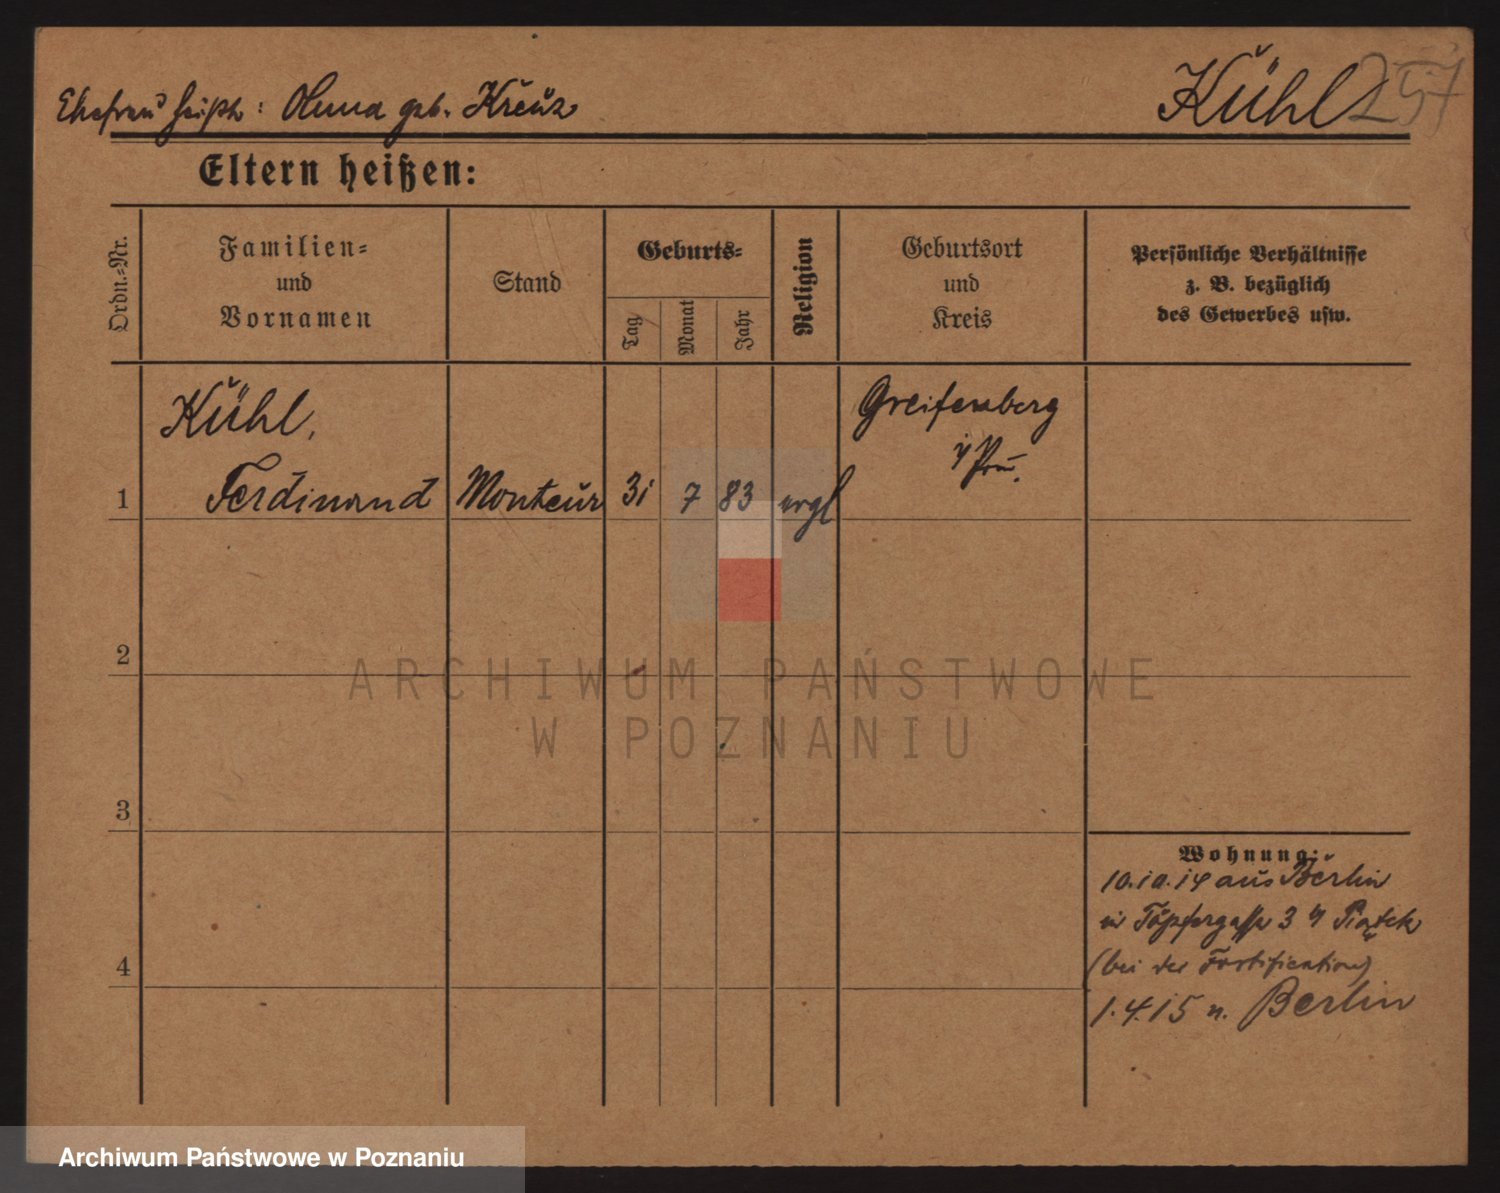 Kühl 257
Ehefrau heißt: Anna geb. Kreuz
Eltern heißen:
Ordn.=Nr.
Familien=
und
Vornamen
Stand
Geburts=
Tag
Monat
Jahr
Religion
Geburtsort
und
Kreis
Persönliche Verhältnisse
z. B. bezüglich
des Gewerbes usw.
Kühl,
Greifenberg
i/Pom.
1 Ferdinand Monteur 31 7 83 evgl
2
3
4
Wohnung:
10.10.14 aus Berlin
in Töpfergasse 3 b/ Piątek
(bei der Fortification)
1.4.15 n. Berlin
ARCHIWUM PAŃSTWOWE
W POZNANIU
Archiwum Państwowe w Poznaniu